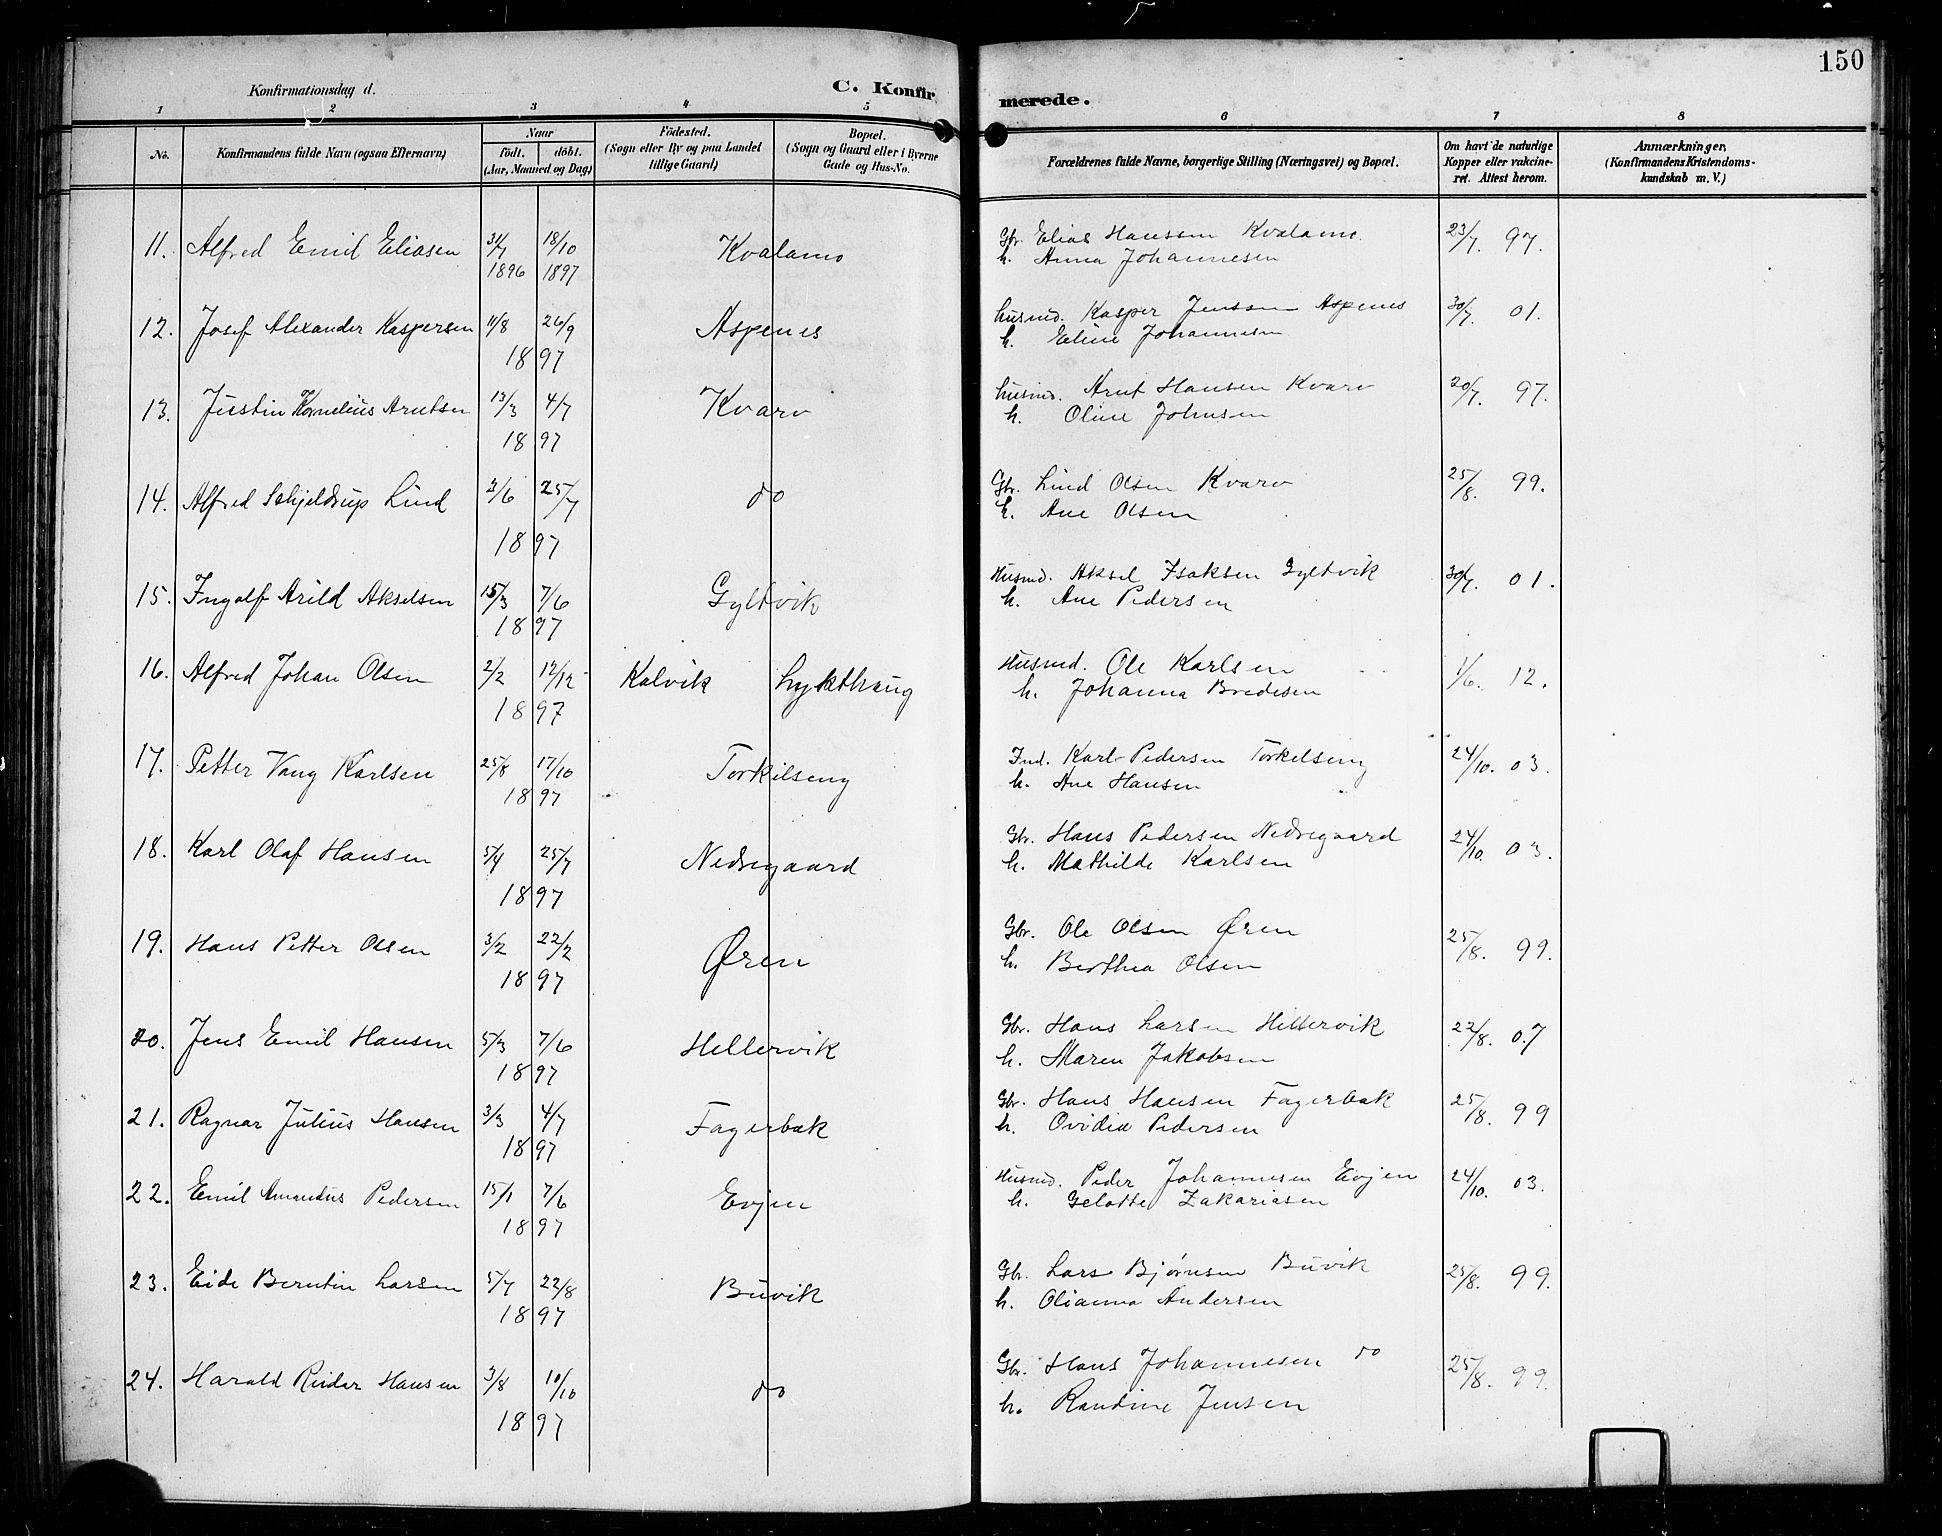 150
Konfirmationsdag d.
C. Konfirmerede.
1 2 3 4 5 6 7 8
No.
Konfirmandens fulde Navn (ogsaa Efternavn)
Naar
födt. döbt.
(Aar, Maaned og Dag)
Födested.
(Sogn eller By og paa Landet
tillige Gaard)
Bopæl.
(Sogn og Gaard eller i Byerne
Gade og Hus-No.
Forældrenes fulde Navne, borgerlige Stilling (Næringsvei) og Bopæl.
Om havt de naturlige
Kopper eller vakcine-
ret. Attest herom.
Anmærkninger,
(Konfirmandens Kristendoms-
kundskab m. V.)
11. Alfred Emil Eliasen 31/7 1896 18/10 1897 Kvalamo Gbr. Elias Hanssen 23/7. 97.
h. Anna Johannesen
12. Josef Alexander Kaspersen 11/8 26/9 Aspenes husmd. Kasper Jenssen Aspenes 30/7. 01.
1897 h. Eline Johannesen
13. Justin Kornelius Arntsen 13/3 4/7 Kvarv husmd. Arnt Hansen Kvarv 20/7. 97.
1897 h. Oline Johnsen
14. Alfred Schjeldrup Lind 2/6 25/7 do Gbr. Lind Olsen Kvarv 25/8. 99.
1897 h. Ane Olsen
15. Ingolf Arild Akselsen 15/3 7/6 Gyltvik Husmd. Aksel Isaksen Gyltvik 30/7. 01.
1897 h. Ane Pedersen
16. Alfred Johan Olsen 2/2 12/12 Kalvik Lykthaug Husmd. Ole Karlsen 1/6. 12.
1897 h. Johanna Bredesen
17. Petter Vang Karlsen 25/8 17/10 Torkilseng Ind. Karl Pedersen Torkelseng 24/10. 03.
1897 h. Ane Hansen
18. Karl Olaf Hansen 5/4 25/7 Nedregaard Gbr. Hans Pedersen Nedregaard 24/10. 03.
1897 h. Mathilde Karlsen
19. Hans Petter Olsen 3/2 22/2 Øren Gbr. Ole Olsen Øren 25/8. 99.
1897 h. Berthea Olsen
20. Jens Emil Hansen 5/3 7/6 Hellervik Gbr. Hans Larsen Hellervik 22/8. 07
1897 h. Maren Jakobsen
21. Ragnar Julius Hansen 3/3 4/7 Fagerbak Gbr. Hans Hansen Fagerbak 25/8. 99
1897 h. Ovidia Pedersen
22. Emil Amandus Pedersen 15/1 7/6 Evjen Husmd. Peder Johannesen Evjen 24/10. 03.
1897 h. Gelotte Zakariasen
23. Eide Berntin Larsen 5/7 22/8 Buvik Gbr. Lars Bjørnsen Buvik 25/8. 99.
1897 h. Olianna Andersen
24. Harald Reider Hansen 3/8 10/10 do Gbr. Hans Johannesen do 25/8. 99.
1897 h. Randine Jensen